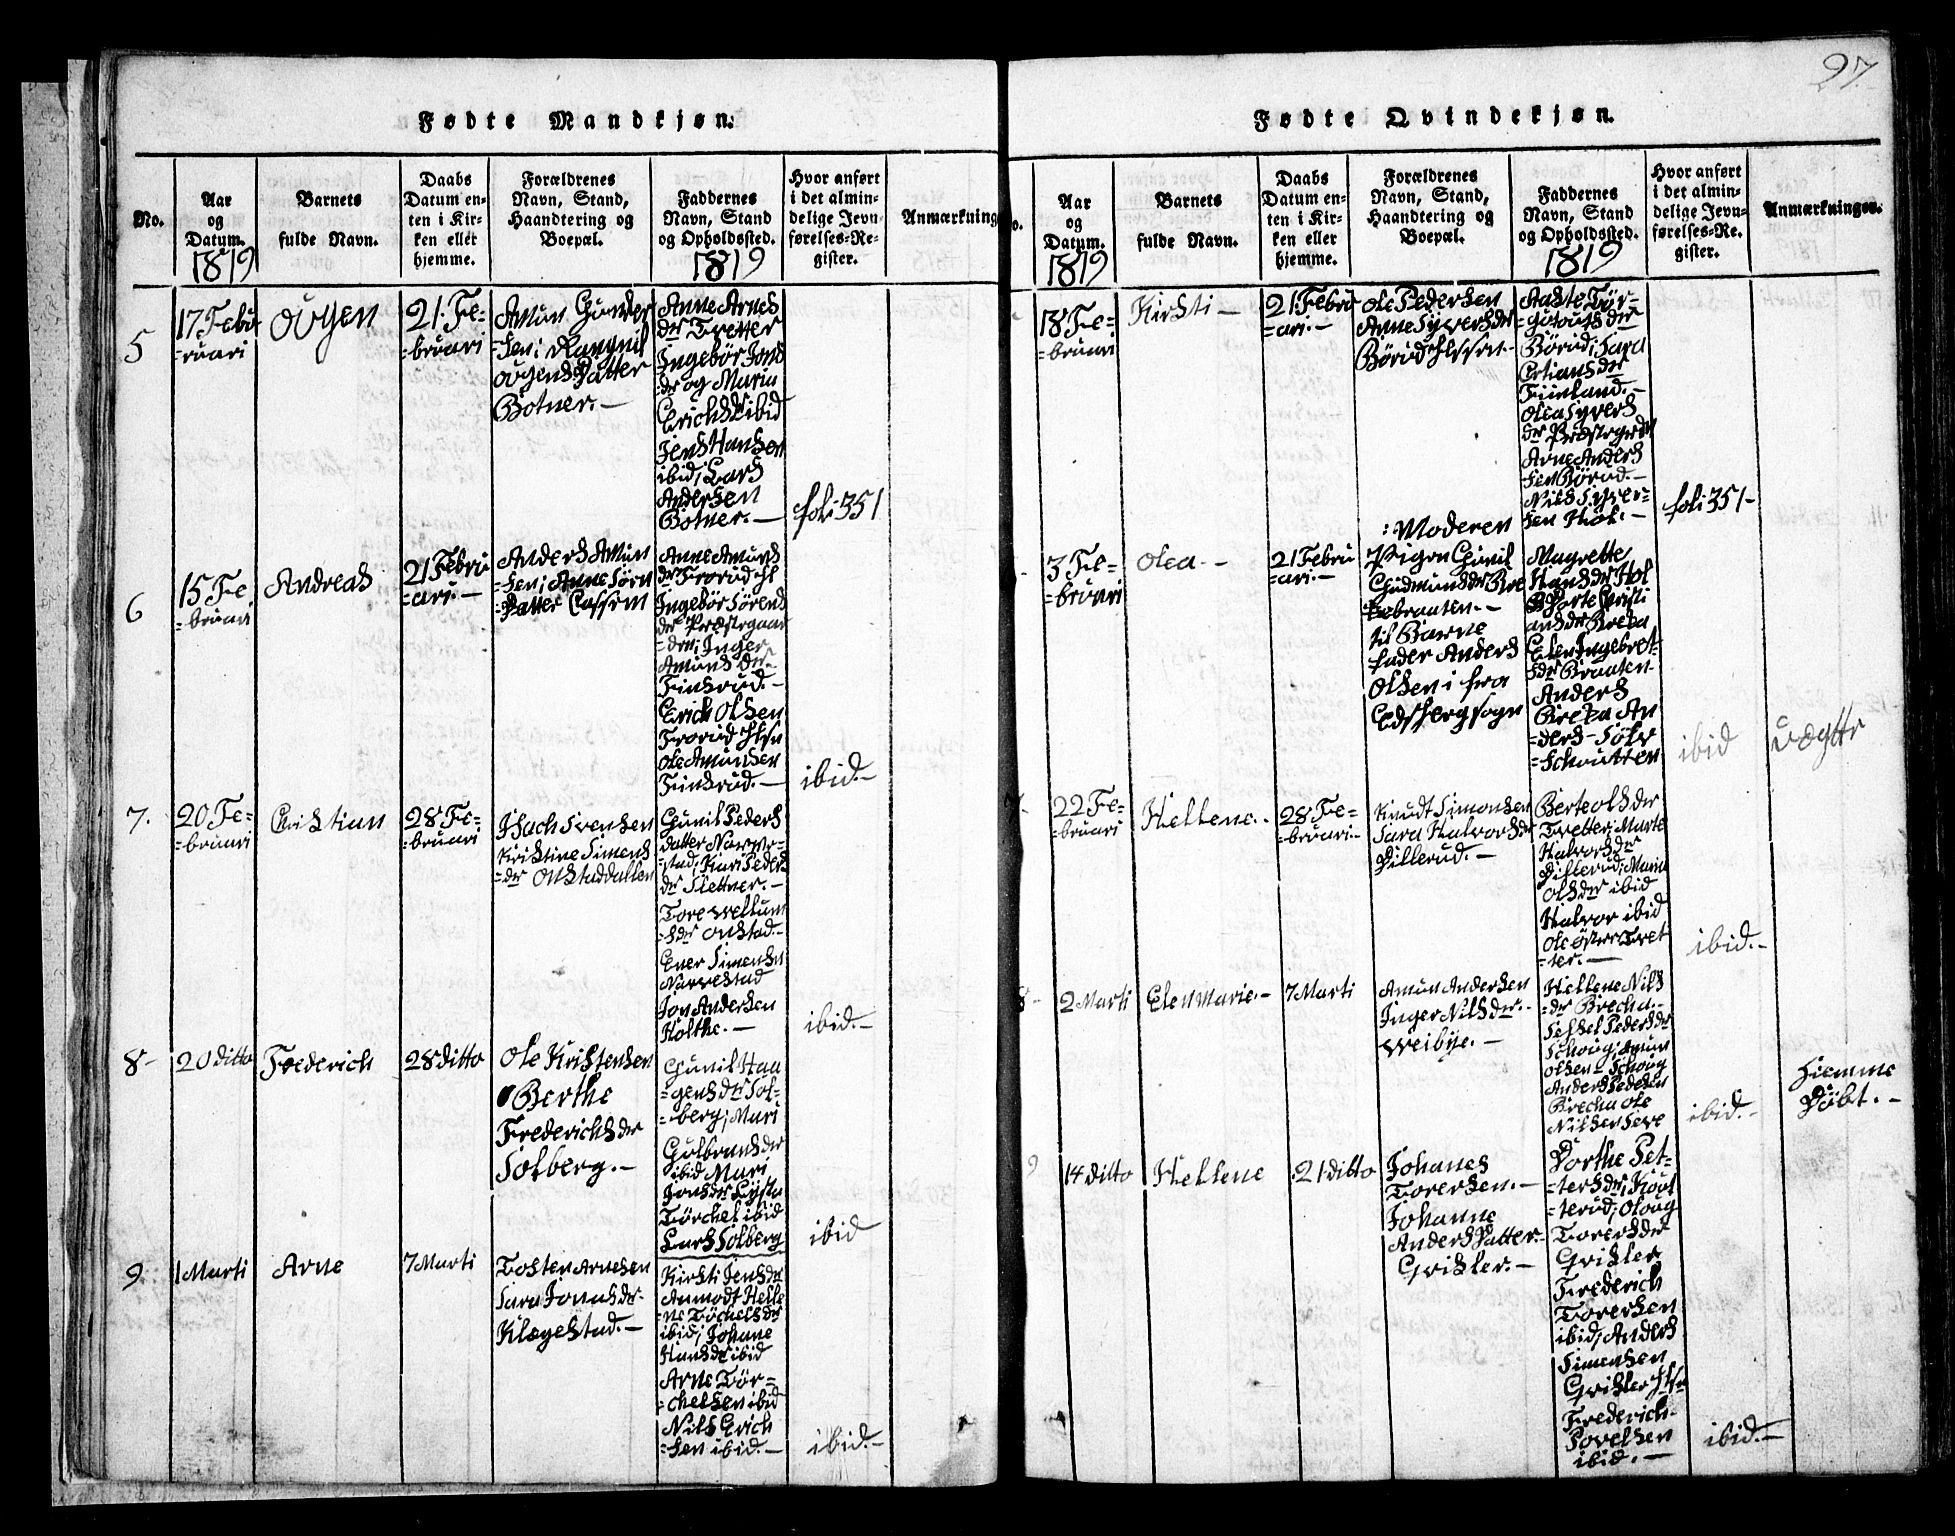 97.
Fødte Mandkjøn.
No.
Aar
og
Datum.
1819
Barnets
fulde Navn.
Daabs
Datum en-
ten i Kir-
ken eller
hjemme.
Forældrenes
Navn, Stand,
Haandtering og
Boepæl.
Faddernes
Navn, Stand
og Opholdssted.
1819
Hvor anført
i det almin-
delige Jevn-
førelses-Re-
gister.
Anmærkning
5
17 Febu
=ruari
Ougen
21. Fe=
=bruari
Amun Gunder
=sen; Rangnil
Ougens Datter
Botner.—
Anne Arnes
der Tretter
Ingebör Jons
der og Maria
Erichsdr ibid
Jens Hansen
ibid; Lars
Andersen
Botner.—
fol: 351
6
15 Fe
=bruari
Andreas
21 Febru
=ari.—
Anders Amun
=sen; Anne Sörn
Datter Cossem
Anne Amunds
der Frorud
Ingebör Sörens
der Præstegaar
=den; Inger
Amunds der
Finsrud.—
Erich Olsen
Frorud
Ole Amunsen
Finsrud.—
ibid.—
7.
20 Fe=
=bruari
Christian
28 Fe=
=bruari
Isach Svensen
Kirstine Simens
=der Onstaddallen
Gunil Peders
datter Narve-
=stad; Kari Peders
der Slettner.—
Tore Wellum
=sder Onstad.—
Ever Simensen
Narvestad
Jon Andersen
Holthe.—
ibid.—
8-
20 ditto
Frederich
28 ditto
Ole Kristensen
Berthe
Frederichsder
Solberg.—
Gunil Haa
=gensder Sol-
=berg; Mari
Gulbransder
ibid Mari
Jonsder Lysta
Törchel ibid
Lars Solberg
ibid
9
1 Marti
Arne
7 Marti
Tosten Arnesen
Sara Jonasder-
Klægestad.—
Kirsti Jensder
Anmodt Helle
=ne Töchelsder
ibid; Johane
Hansder ibid
Arne Tör=
=chelsen ibid
Nils Erich
=sen ibid.—
ibid.—
Fødte Qvindekjøn.
o.
Aar
og
Datum.
1819
Barnets
fulde Navn.
Daabs
Datum en-
ten i Kir-
ken eller
hjemme.
Forældrenes
Navn, Stand,
Haandtering og
Boepæl.
Faddernes
Navn, Stand
og Opholdssted.
1819
Hvor anført
i det almin-
delige Jevn-
førelses-Re-
gister.
Anmærkninger.
18 Fe-
=bruari
Kirsti —
21 Febru
=ari.—
Ole Pedersen
Anne Syversder
Börud
Aaste Tör-
Börud; Sara
Finland.—
Olea Syvers
der Præstegrden
Arne Anders
sen Börud.—
Nils Syver-
sen Hol.—
fol: 351-
3 Fe=
=bruari
Olea.-
21 Febru
=ari.—
: Moderen
Pigen Gunil
Gudmundsder Bre
kebraaten.-
til Barne
fader Anders
Olsen i fra
Edsbergsogn
Magrette
Hansder Hol
Dorte Christi
ansder Breka
Elen Ingebret-
sder Braaten-
Anders
Breka An
=ders Sölv
=schrutten
ibid
Uægtr
22 Fe=
=bruari
Hellene.-
28 Fe=
=bruari-
Knudt Simonsen
Sara Halvorsder
Dillerud.—
Berte Olsder
Tretter; Marte
Halvorsder
Dillerud; Maria
Olsder ibid
Halvor ibid
Ole Tret
=ter.—
ibid.-
8-
2 Marti
Elen Marie.-
7 Marti
Amun Andersen
Inger Nilsder.-
Weibye.—
Hellene Nils
=der Brecha.-
Sessel Pedersder
Schoug; Amun
Olsen Schoug
Anders Pedersen
Brecha Ole
Nilsen
ibid.-
Hiemme
Döbt.—
9
14 ditto
Hellene
21 ditto
Johanes
Torersen.—
Johanne
Anders Datter-
Grisler.—
Dorthe Pet-
=tersder; Koul
=terud; Oloug
Torersder
Grisler
Frederich
Torersen
ibid; Anders
Simensen
Grisler
Frederich-
Povelsen
ibid.—
ibid.—